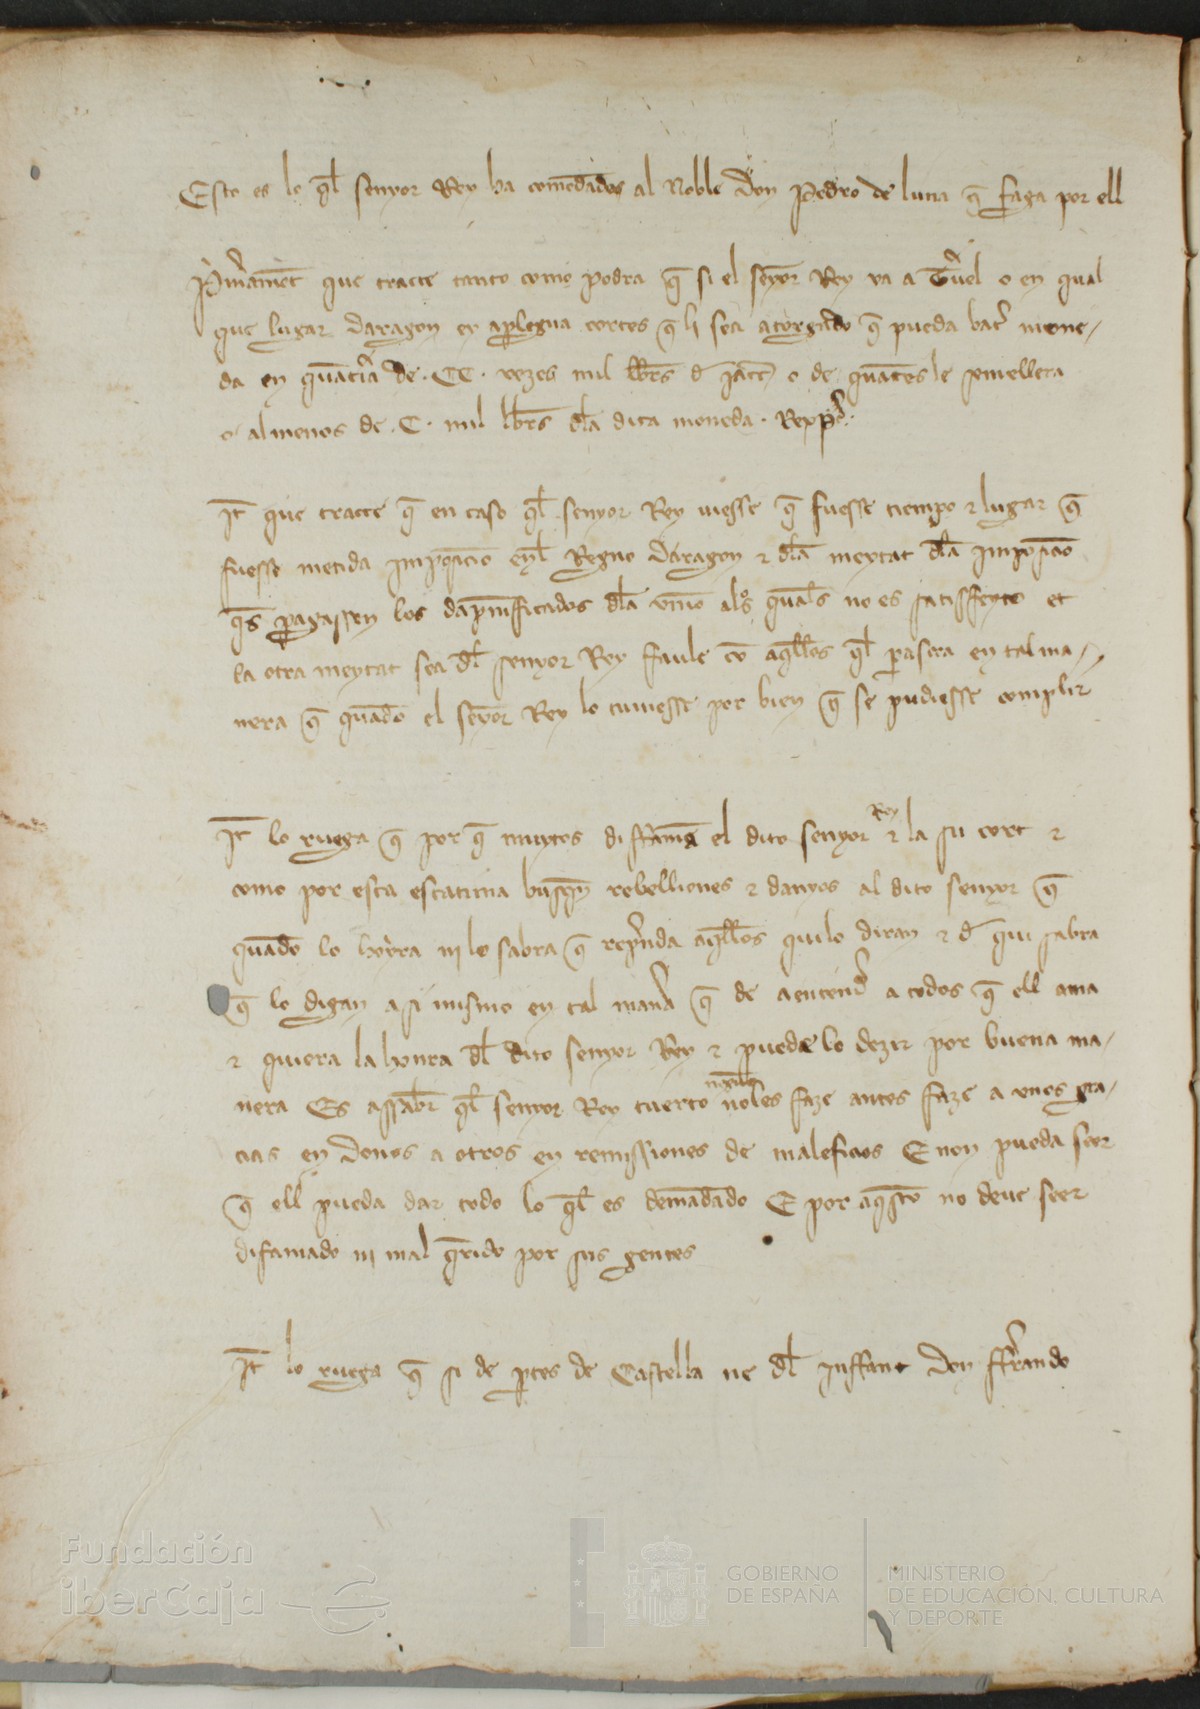 Esto es lo q̄l senyor Rey ha comēdados al Noble Don Pedro de luna q̄ faga por ell
P̉imerāmēt que tracte tanto como podra q̄ si el seyōr Rey va a T̉uel o en qual
que lugar daragon ey aplegua cortes q̄ li sea atorgado q̄ pueda bat̉ mone-
da en quātia de . CC . vezes mil lb̄rs d̄ Jacc̄ o de quātes le semellera
o almenos de . C . mil lb̄rs dl̄a dita moneda .
It̄ que tracte q̄ en caso q̄l senyor Rey viesse q̄ fuesse tiempo ⁊ lugar q̄
fuesse metida Imposicio enl̄ Regno daragon ⁊ dl̄a meytat dl̄a Imposicio
q̄s pagassen los dapnificados dl̄a unio als quals no es satisfeyto et
la otra meytat sea dl̄ senyor Rey faule cō aq̄llos q̄l parsera en tal ma-
nera q̄ quādo el seyōr Rey lo tuviesse por bien q̄ se pudiesse complir
It̄ lo ruega q̄ por q̄ muytos diffamā el dito senyor Rey ⁊ la su cort ⁊
como por esta escatima busq̄n rebelliones ⁊ danyos al dito senyor q̄
quādo lo hoyra ni lo sabra q̄ rep̉nda aq̄llos qui lo diran ⁊ d̄ qui sabra
q̄ lo digan asi mismo en tal maña q̄ de a entend̉ a todos q̄ ell ama
⁊ quiera la honra dl̄ dito senyor Rey ⁊ puede lo dezir por buena ma-
nera Es assab̄r q̄l senyor Rey tuerto noles faze antes faze a unos gra-
cias en donos a otros en remissiones de maleficios E non pueda seer
q̄ ell pueda dar todo lo q̄l es demādado E por aq̄sto no deue seer
difamado ni mal q̄rido por sus gentes
It̄ lo ruega q̄ si de ptes de Castella ne dl̄ Inffant Don fferando
Fundación
iberCaja
GOBIERNO
DE ESPAÑA
MINISTERIO
DE EDUCACIÓN, CULTURA
Y DEPORTE